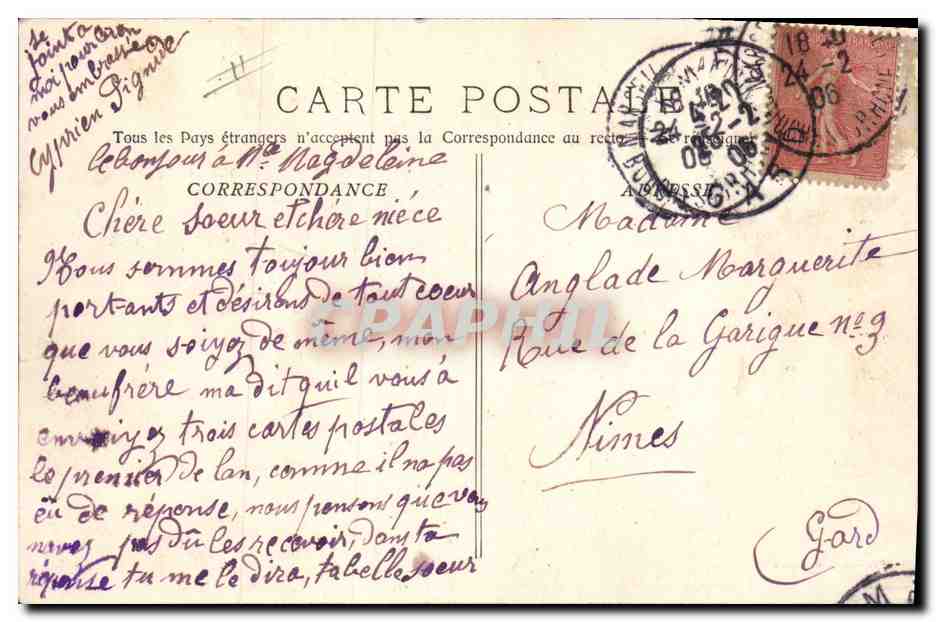 se
joint a
moi pour
vous embrasser
Cyprien Pignide
CARTE POSTALE
Tous les Pays étrangers n'acceptent pas la Correspondance au recto. Se renseigner
le bonjour a Mme Magdeleine
CORRESPONDANCE
ADRESSE
Chère soeur et chère niéce
Nous sommes toujour bien
portants et désirons de tout coeur
que vous soiyez de même, mon
beaufrére ma dit quil vous á
envoiyez trois cartes postales
le premier de lan, comme il na pas
eû de réponse, nous pensons que vous
navez pas dû les recevoir, dans ta
réponse tu me le dira, ta belle soeur
Madame
Anglade Marguerite
Rue de la Garigue no. 3
Nimes
Gard
18 40
24 -2
06
CPAPHIL